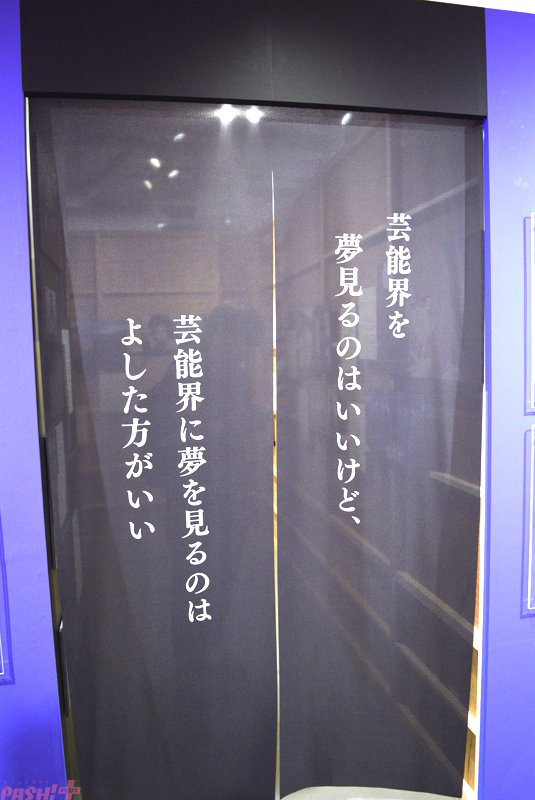 芸能界を
夢見るのはいいけど、
芸能界に夢を見るのは
よした方がいい
PASH!+